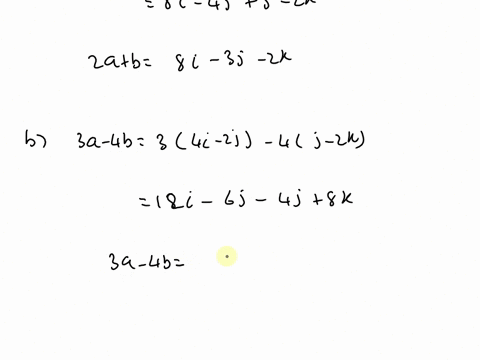 = 8i - 4j + j - 2k
2a+b = 8i - 3j - 2k
b) 3a-4b = 3(4i-2j) - 4(j-2k)
= 12i - 6j - 4j + 8k
3a-4b =